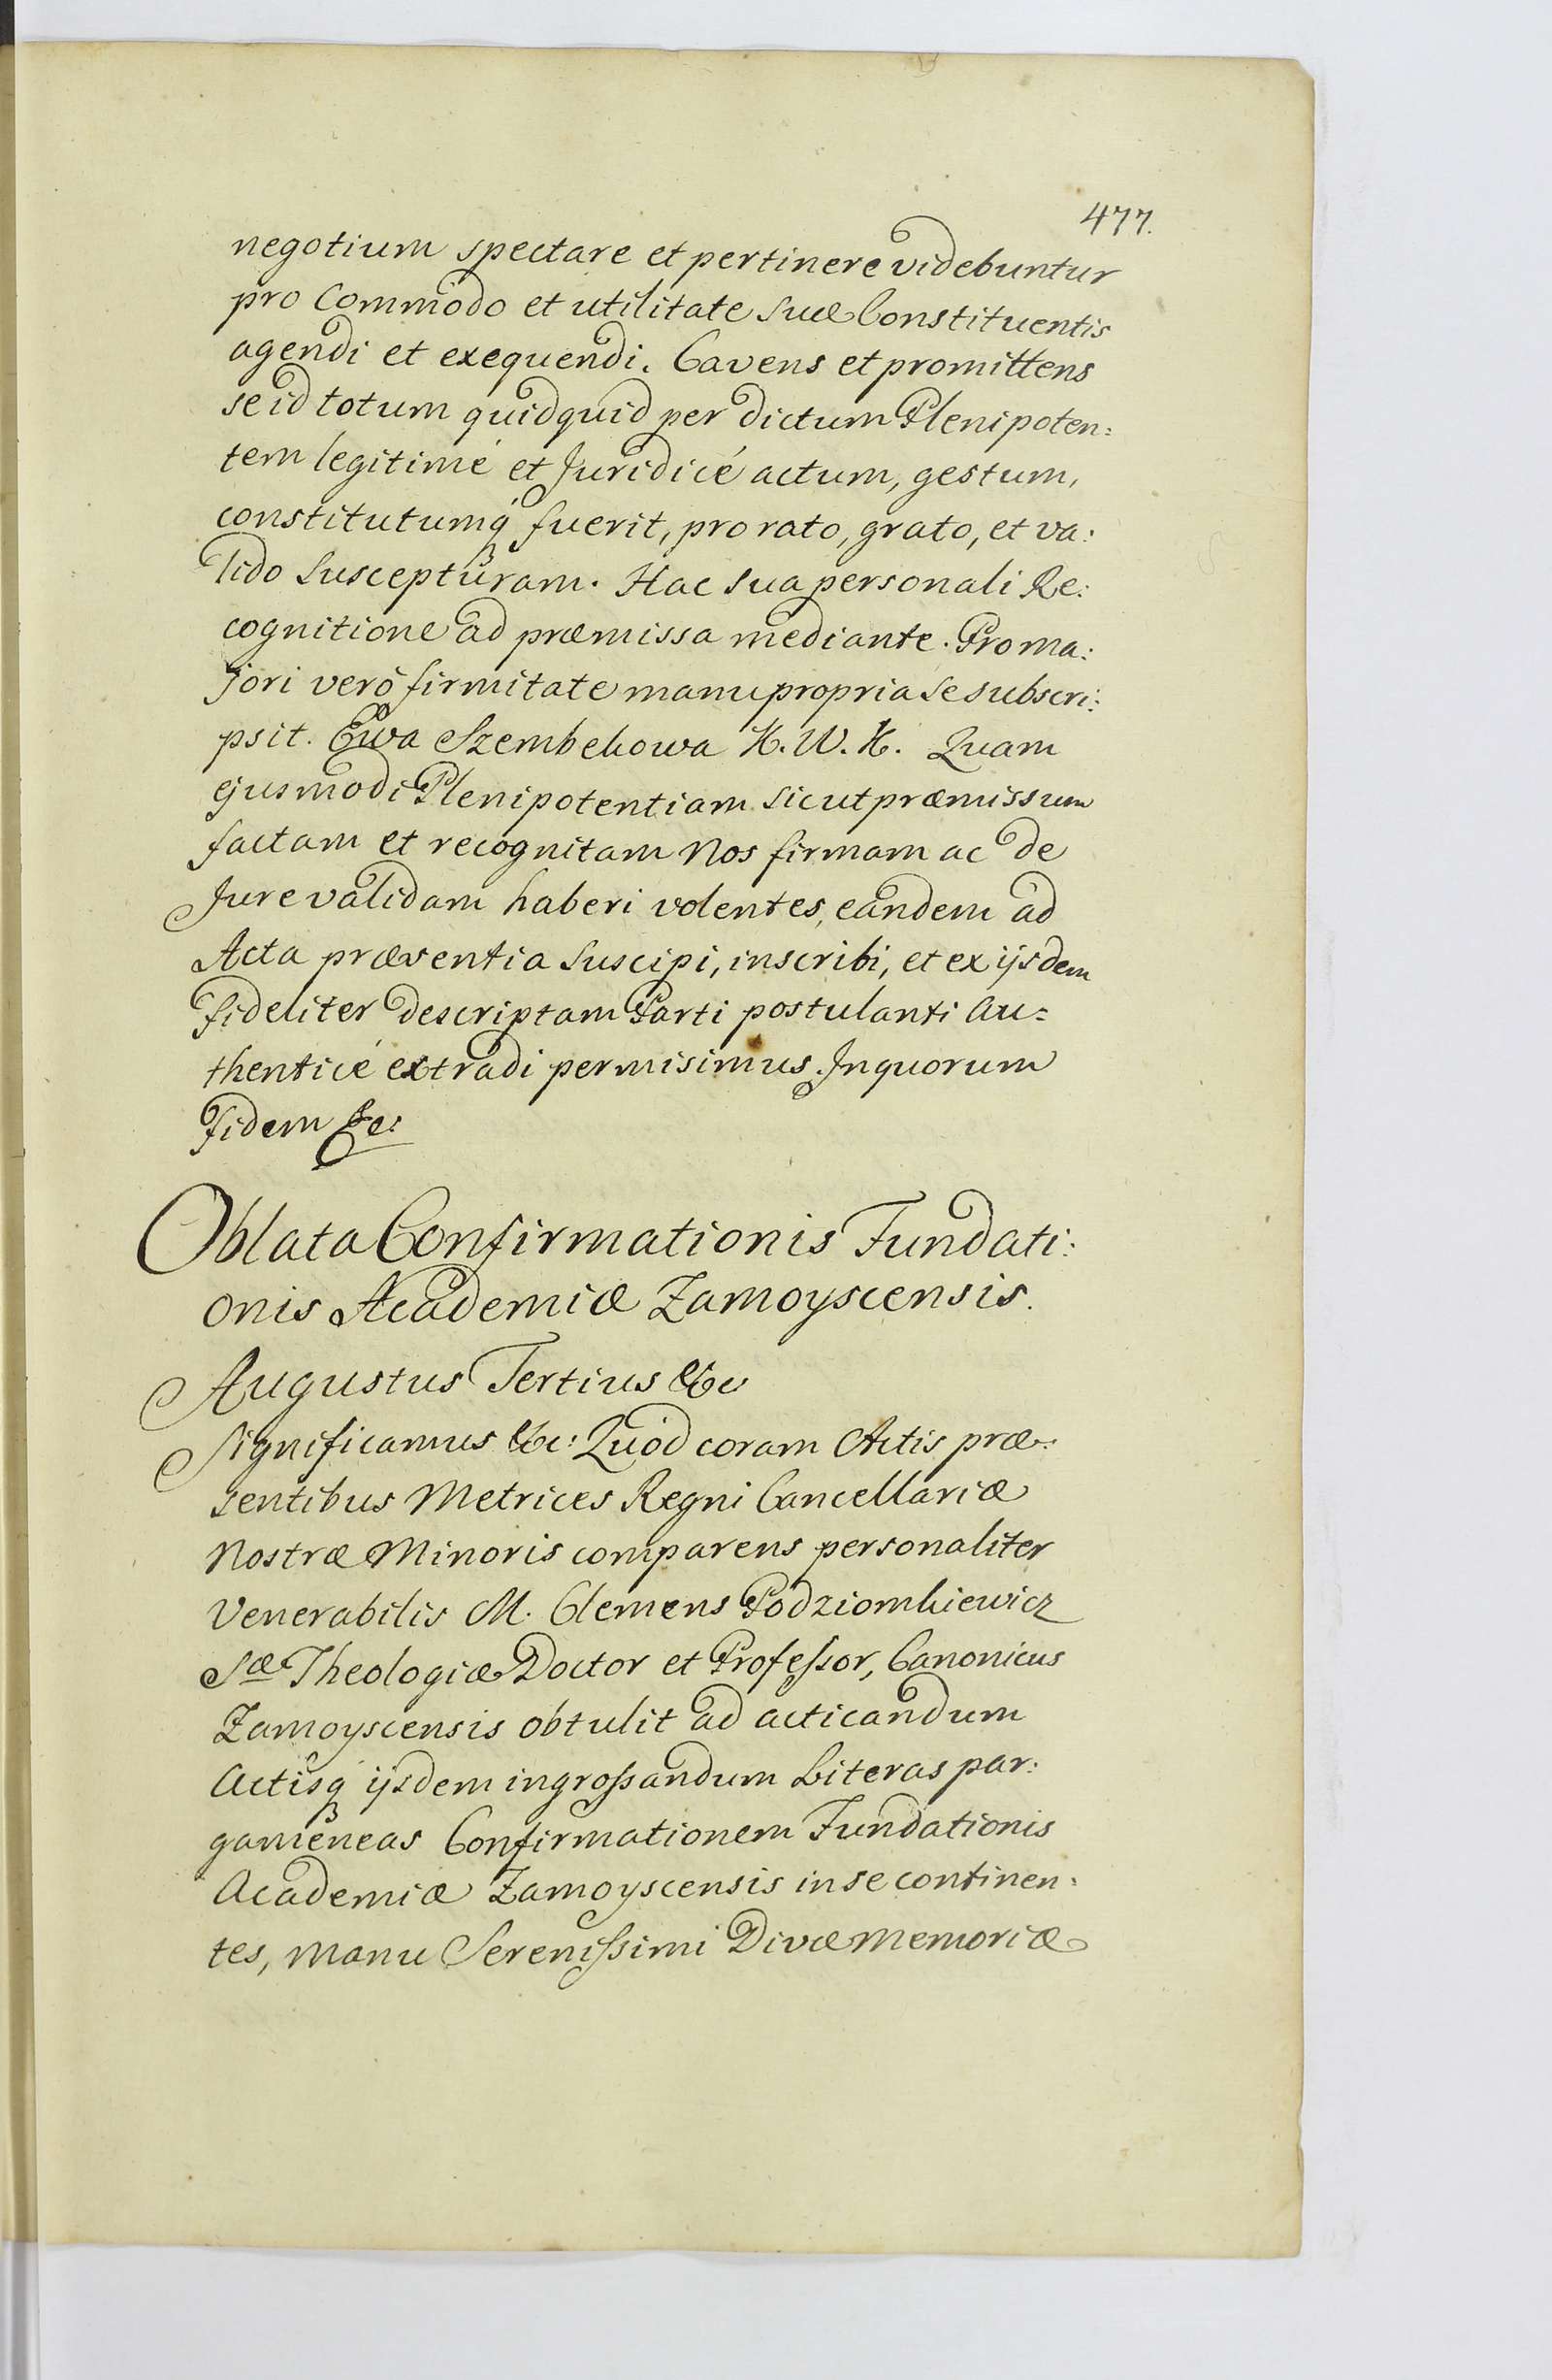 477.
negotium spectare et pertinere videbuntur
pro Commodo et utilitate suæ Constituentis
agendi et exequendi. Cavens et promittens
se id totum quidquid per dictum Plenipoten:
tem legitimé et Juridicé actum, gestum,
constitutumq́ fuerit, pro rato, grato, et va:
lido suscepturam. Hac sua personali Re:
cognitione ad præmissa mediante. Pro ma:
jori verò firmitate manu propria se subscri:
psit. Ewa Szembekowa K. W. K. Quam
ejusmodi Plenipotentiam sicut præmissum
factam et recognitam Nos firmam ac de
Jure validam haberi volentes, eandem ad
Acta præsentia suscipi, inscribi, et ex ijsdem
fideliter descriptam Parti postulanti Au=
thenticé extradi permisimus. In quorum
fidem &c:
Oblata Confirmationis Fundati:
onis Academiæ Zamoyscensis.
Augustus Tertius &c
Significamus &c: Quod coram Actis præ:
sentibus Metrices Regni Cancellariæ
Nostræ Minoris comparens personaliter
Venerabilis M. Clemens Podziomkiewicz
Sæ Theologiæ Doctor et Professor, Canonicus
Zamoyscensis obtulit ad acticandum
Actisq ijsdem ingrossandum Literas par:
gameneas Confirmationem Fundationis
Academiæ Zamoyscensis in se continen:
tes, manu Serenissimi Divæ Memoriæ